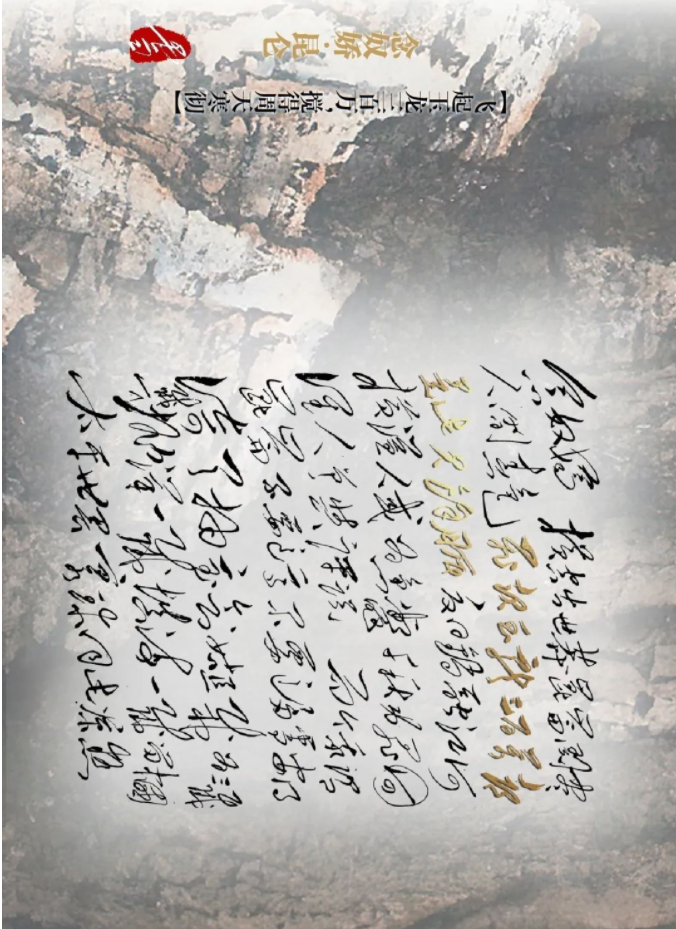 念奴娇·昆仑
【飞起玉龙三百万,搅得周天寒彻】
念奴娇 横空出世莽昆仑阅尽
人间春色飞起玉龙三百万搅
得周天寒彻夏日消溶江河
横溢人或为鱼鳖千秋功罪
谁人曾与评说 而今我谓
昆仑不要这高不要这多雪安得
倚天抽宝剑把汝裁为三截
一截遗欧一截赠美一截 国
太平世界环球同此凉热